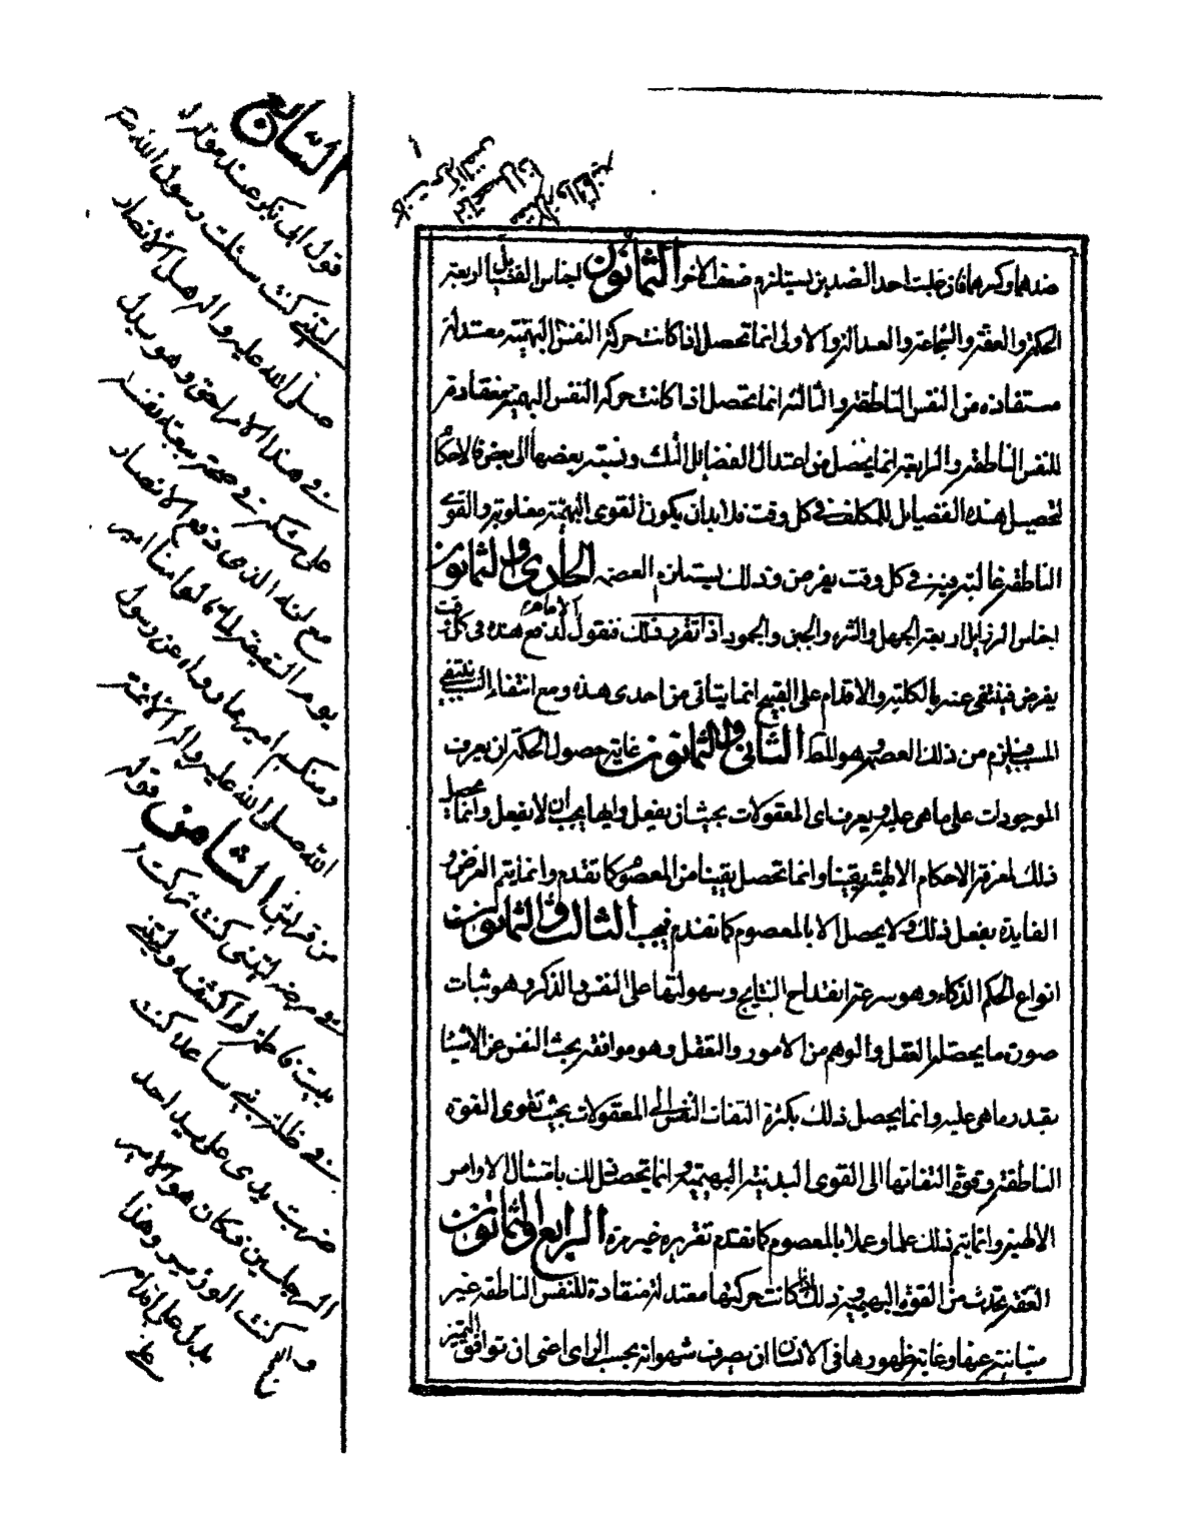 ضدهما وكسرهما فان غلبت احد الضدين يستلزم ضعف الاخر الثمانون اجناس الفضايل اربعة
الحكمة والعفة والشجاعة والعدالة والاولى انما تحصل اذا كانت حركة النفس البهيمية معتدلة
مستفاده من النفس الناطقة والثالثة انما تحصل اذا كانت حركة النفس البهيمية منقادة
للنفس الناطقة والرابعة انما يحصل من اعتدال الفضايل الثلث ونسبة بعضها الى بعض فالاحكام
لتحصيل هذه الفضايل للمكلف في كل وقت فلابد ان يكون القوى البهيمية مغلوبة والقوى
الناطقة غالبة في كل وقت يفرض وذلك يستلزم العصمة الحادى والثمانون
اجناس الرذايل اربعة الجهل والشره والجبن والجور اذا تقرر ذلك فنقول الامام لا تقع هذه في كل وقت
يفرض فينتفى عنه بالكلية والاقدام على القبيح انما يتأتى من احدى هذه ومع انتفاء السبب ينتفى
المسبب فيلزم من ذلك العصمة وهو المط الثانى والثمانون غاية حصول الحكمة ان يعرف
الموجودات على ما هى عليه ويعرف اى المعقولات يجب ان يفعل وايها يجب ان لا يفعل وانما يحصل
ذلك لمعرفة الاحكام الالهية يقينا وانما تحصل يقينا من المعصوم كما تقدم وانما يتم الغرض و
الفايدة بفعل ذلك ولا يحصل الا بالمعصوم كما تقدم فيجب الثالث والثمانون
انواع الحكم الذكاء وهو سرعة انقداح النتايج وسهولتها على النفس والذكر وهو ثبات
صورة ما يحصله العقل والوهم من الامور والتعقل وهو موافقة بحث النفس عن الاشياء
بقدر ما هى عليه وانما يحصل ذلك بكثرة التفات النفس الى المعقولات بحيث تقوى القوة
الناطقة وقوة التفاتها الى القوى البدنية البهيمية وانما تحصل ذلك بامتثال الاوامر
الالهية وانما يتم ذلك علما وعملا بالمعصوم كما تقدم تقريره غير مرة الرابع والثمانون
العفة تحدث من القوة البهيمية وذلك اذا كانت حركتها معتدلة منقادة للنفس الناطقة غير
متباينة عنها وغاية ظهورها في الانسان ان يصرف شهواته بحسب الراى اعنى ان توافق التميز
السابع
قول ابى بكر عند موته
ليتنى كنت سئلت رسول الله
صلى الله عليه واله هل للانصار
في هذا الامر حق وهو يدل
على شكه في صحة بيعة نفسه
مع انه الذى دفع الانصار
يوم السقيفة لما قالوا منا امير
ومنكم امير بما رواه عن رسول
الله صلى الله عليه واله الائمة
من قريش الثامن قوله
في مرضه ليتنى كنت تركت
بيت فاطمة لم اكشفه وليتنى
في ظلة بنى ساعدة كنت
ضربت يدى على يد احد
الرجلين فكان هو الامير
وكنت الوزير وهذا
يدل على اقدامه
على